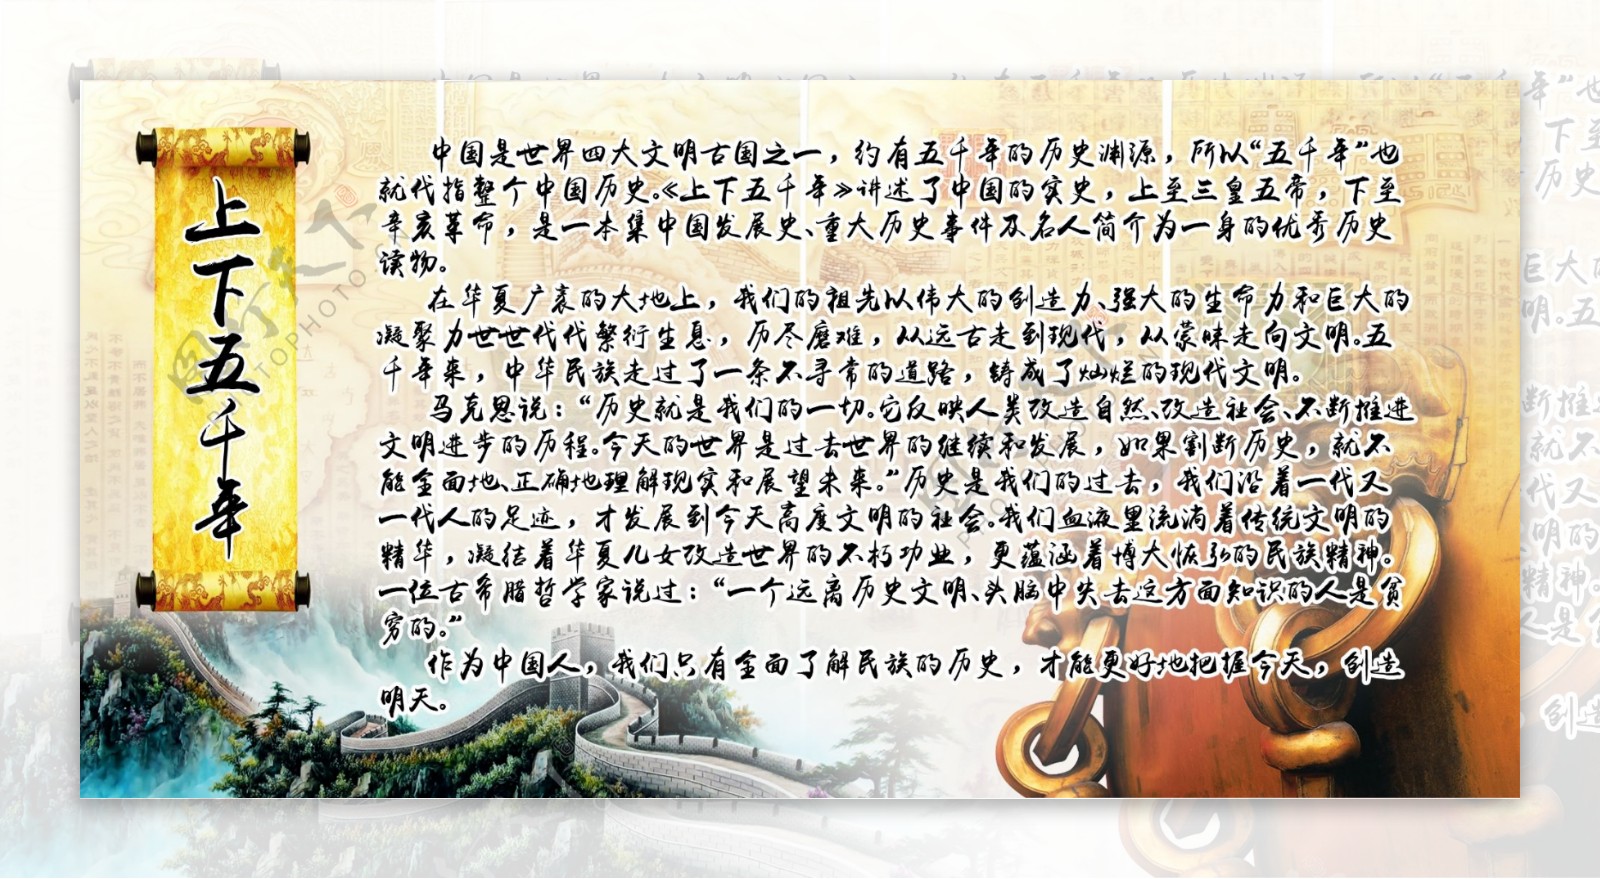 上下五千年
中国是世界四大文明古国之一，约有五千年的历史渊源，所以“五千年”也
就代指整个中国历史。《上下五千年》讲述了中国的实史，上至三皇五帝，下至
辛亥革命，是一本集中国发展史、重大历史事件及名人简介为一身的优秀历史
读物。
在华夏广袤的大地上，我们的祖先以伟大的创造力、强大的生命力和巨大的
凝聚力世世代代繁衍生息，历尽磨难，从远古走到现代，从蒙昧走向文明。五
千年来，中华民族走过了一条不寻常的道路，铸成了灿烂的现代文明。
马克思说：“历史就是我们的一切。它反映人类改造自然、改造社会、不断推进
文明进步的历程。今天的世界是过去世界的继续和发展，如果割断历史，就不
能全面地、正确地理解现实和展望未来。”历史是我们的过去，我们沿着一代又
一代人的足迹，才发展到今天高度文明的社会。我们血液里流淌着传统文明的
精华，凝结着华夏儿女改造世界的不朽功业，更蕴涵着博大恢弘的民族精神。
一位古希腊哲学家说过：“一个远离历史文明、头脑中失去这方面知识的人是贫
穷的。”
作为中国人，我们只有全面了解民族的历史，才能更好地把握今天，创造
明天。